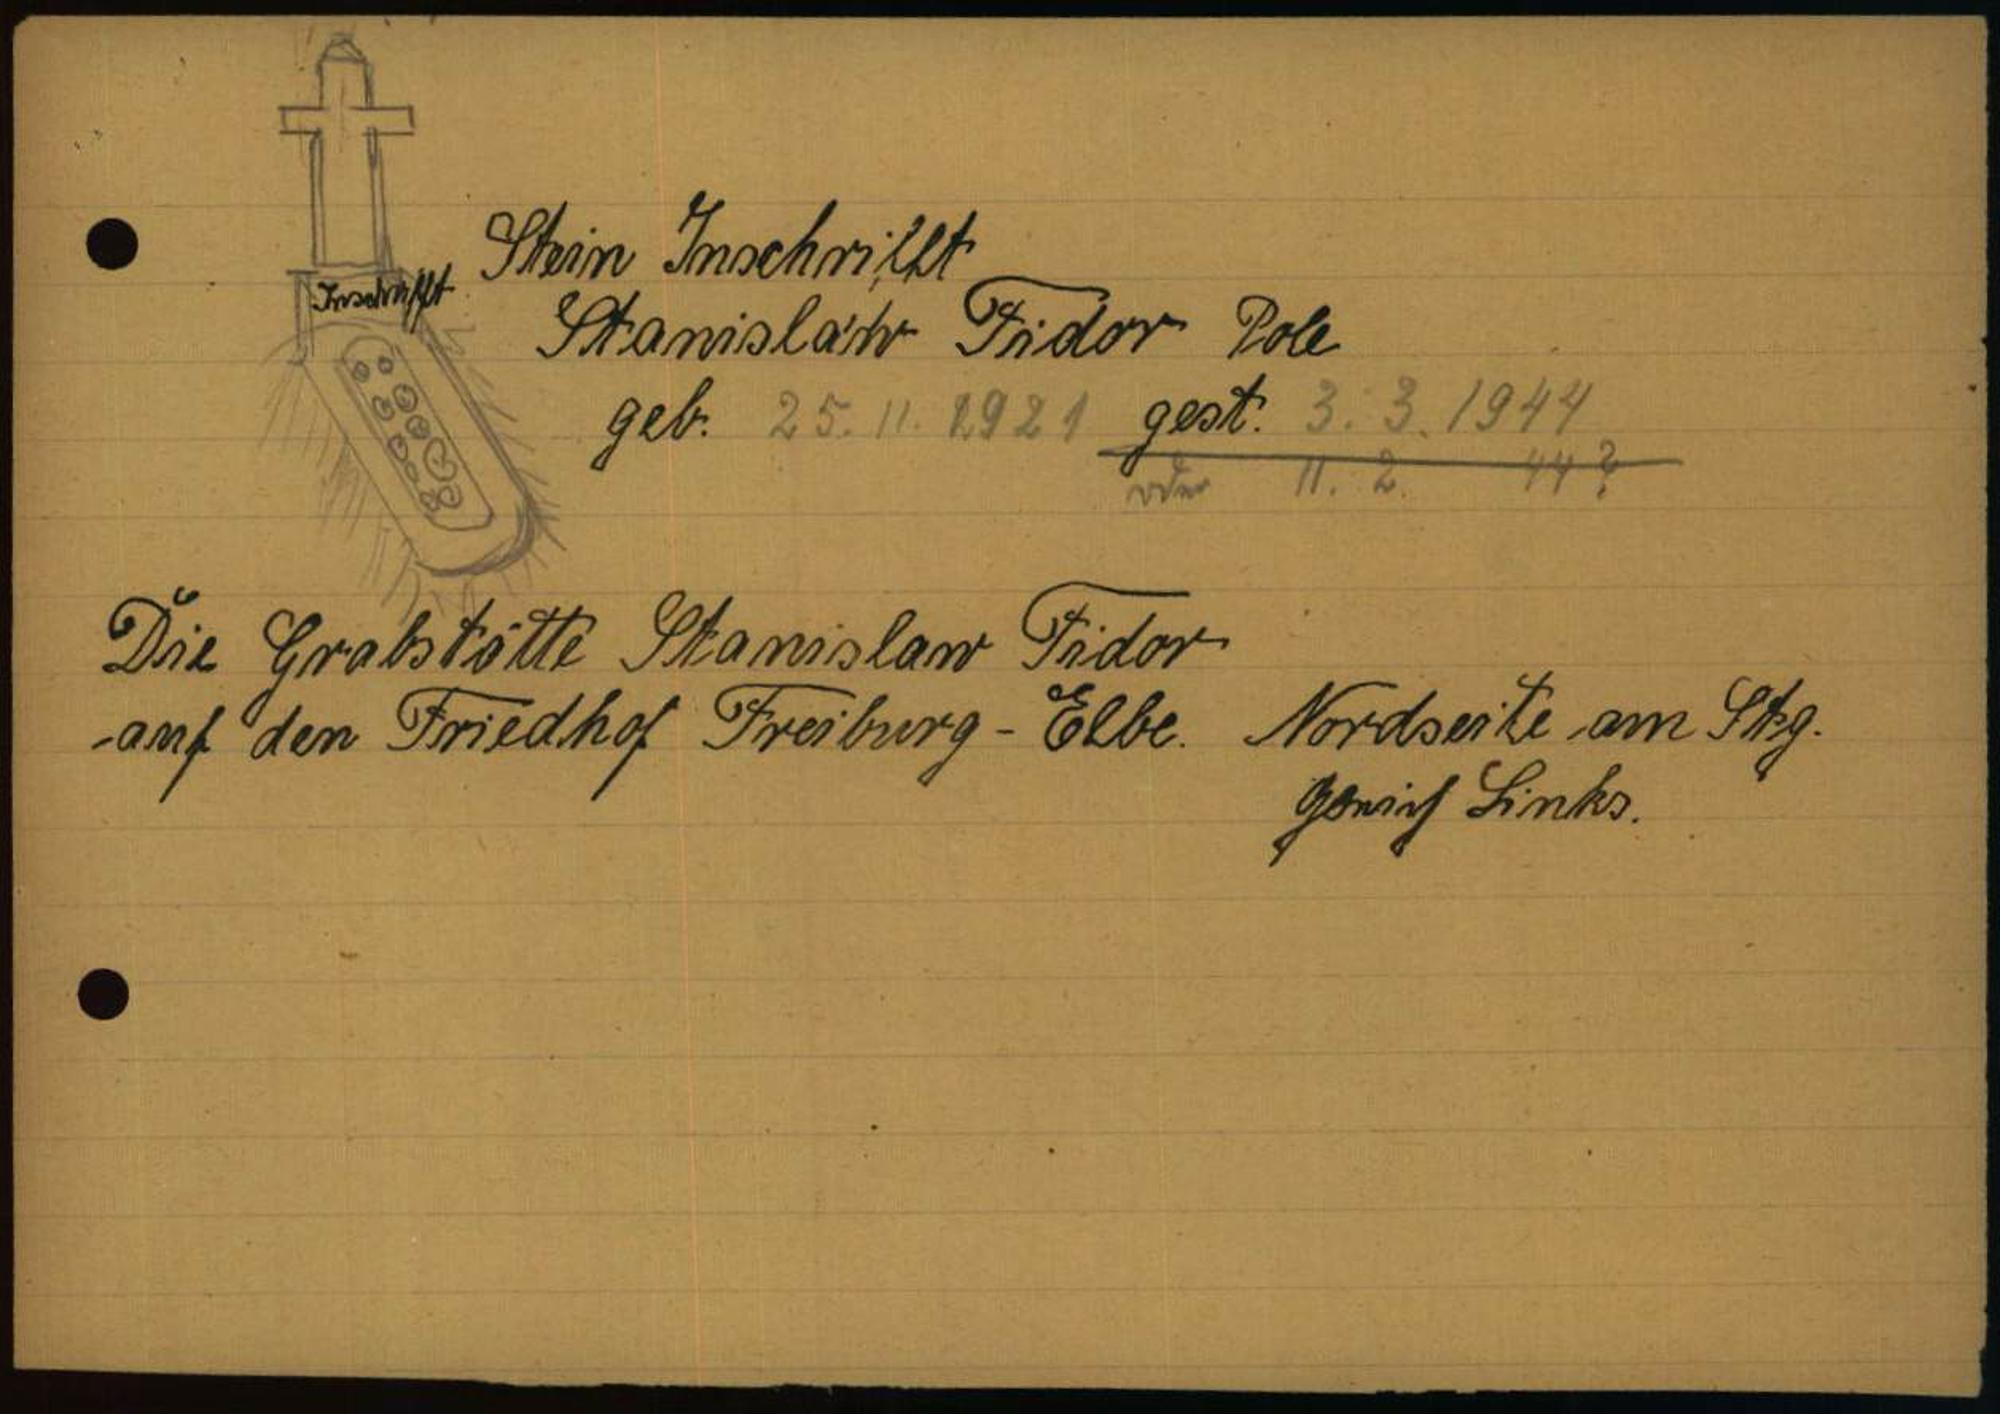 Stein Inschrifft
Inschrifft
Stanislaw Fidor Pole
geb. 25. 11. 1921 gest. 3. 3. 1944
oder 11. 2. 44?
Die Grabstätte Stanislaw Fidor
auf den Friedhof Freiburg - Elbe. Nordseite am Stg.
Links.